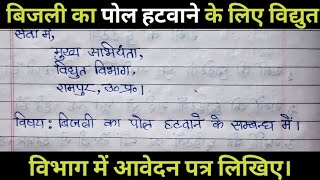 बिजली का पोल हटवाने के लिए विद्युत
सेवा में,
मुख्य अभियंता,
विद्युत विभाग,
रामपुर, उ०प्र०।
विषय: बिजली का पोल हटवाने के सम्बन्ध में।
विभाग में आवेदन पत्र लिखिए।